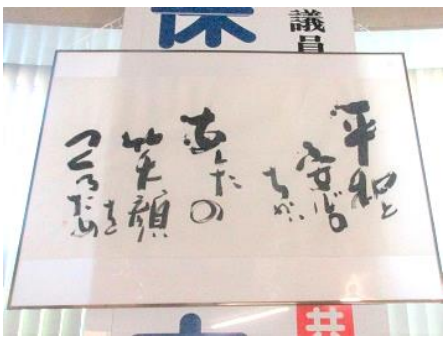 議員
平和と
安心
ちかい
あなたの
笑顔を
つくるため
共